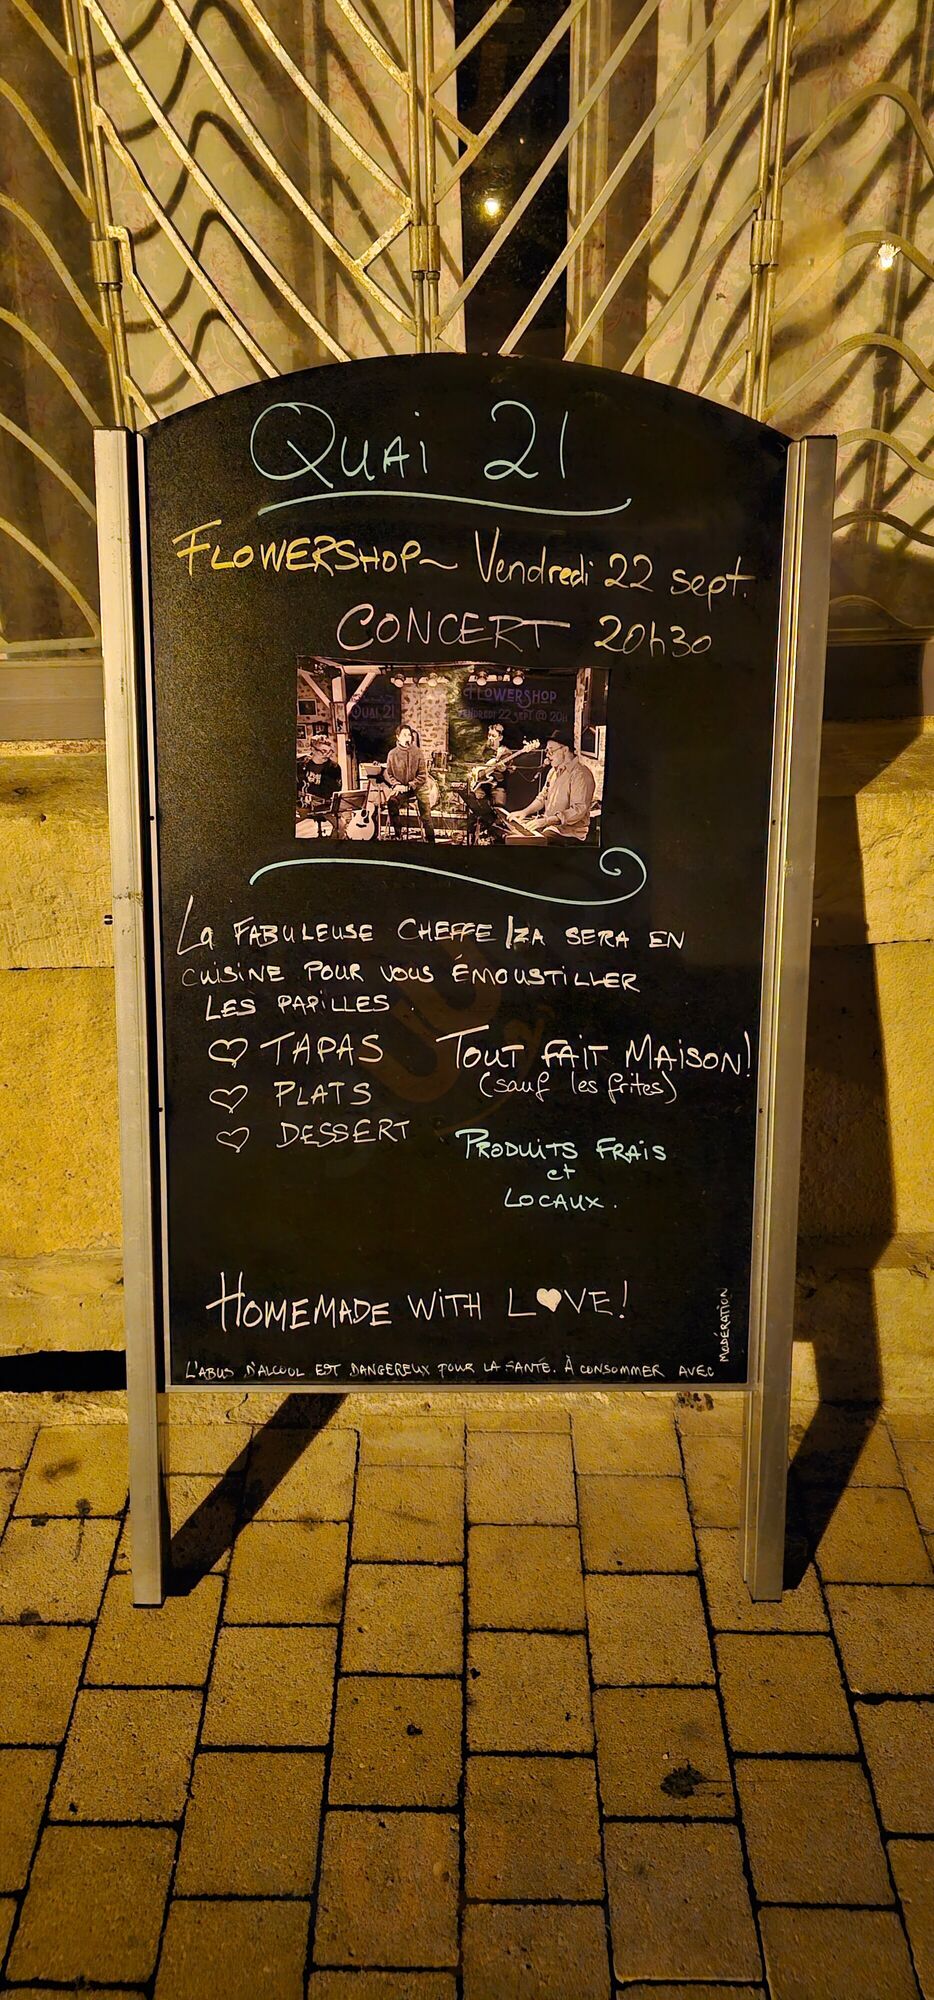 Quai 21
FLOWERSHOP~ Vendredi 22 sept.
CONCERT 20h30
QUAI 21
FLOWERSHOP
VENDREDI 22 SEPT @ 20H
La FABULEUSE CHEFFE IZA SERA EN
CUISINE POUR VOUS ÉMOUSTILLER
LES PAPILLES.
♡ TAPAS
♡ PLATS
♡ DESSERT
TOUT FAIT MAISON!
(sauf les frites)
PRODUITS FRAIS
et
LOCAUX.
HOMEMADE WITH L♥VE!
L'ABUS D'ALCOOL EST DANGEREUX POUR LA SANTÉ. À CONSOMMER AVEC
MODÉRATION